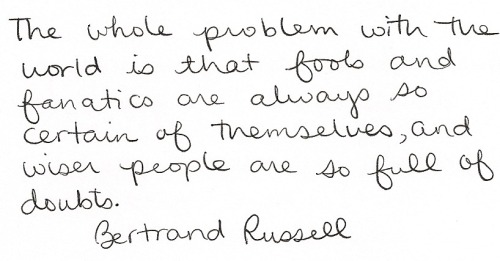 The whole problem with the
world is that fools and
fanatics are always so
certain of themselves, and
wiser people are so full of
doubts.
Bertrand Russell